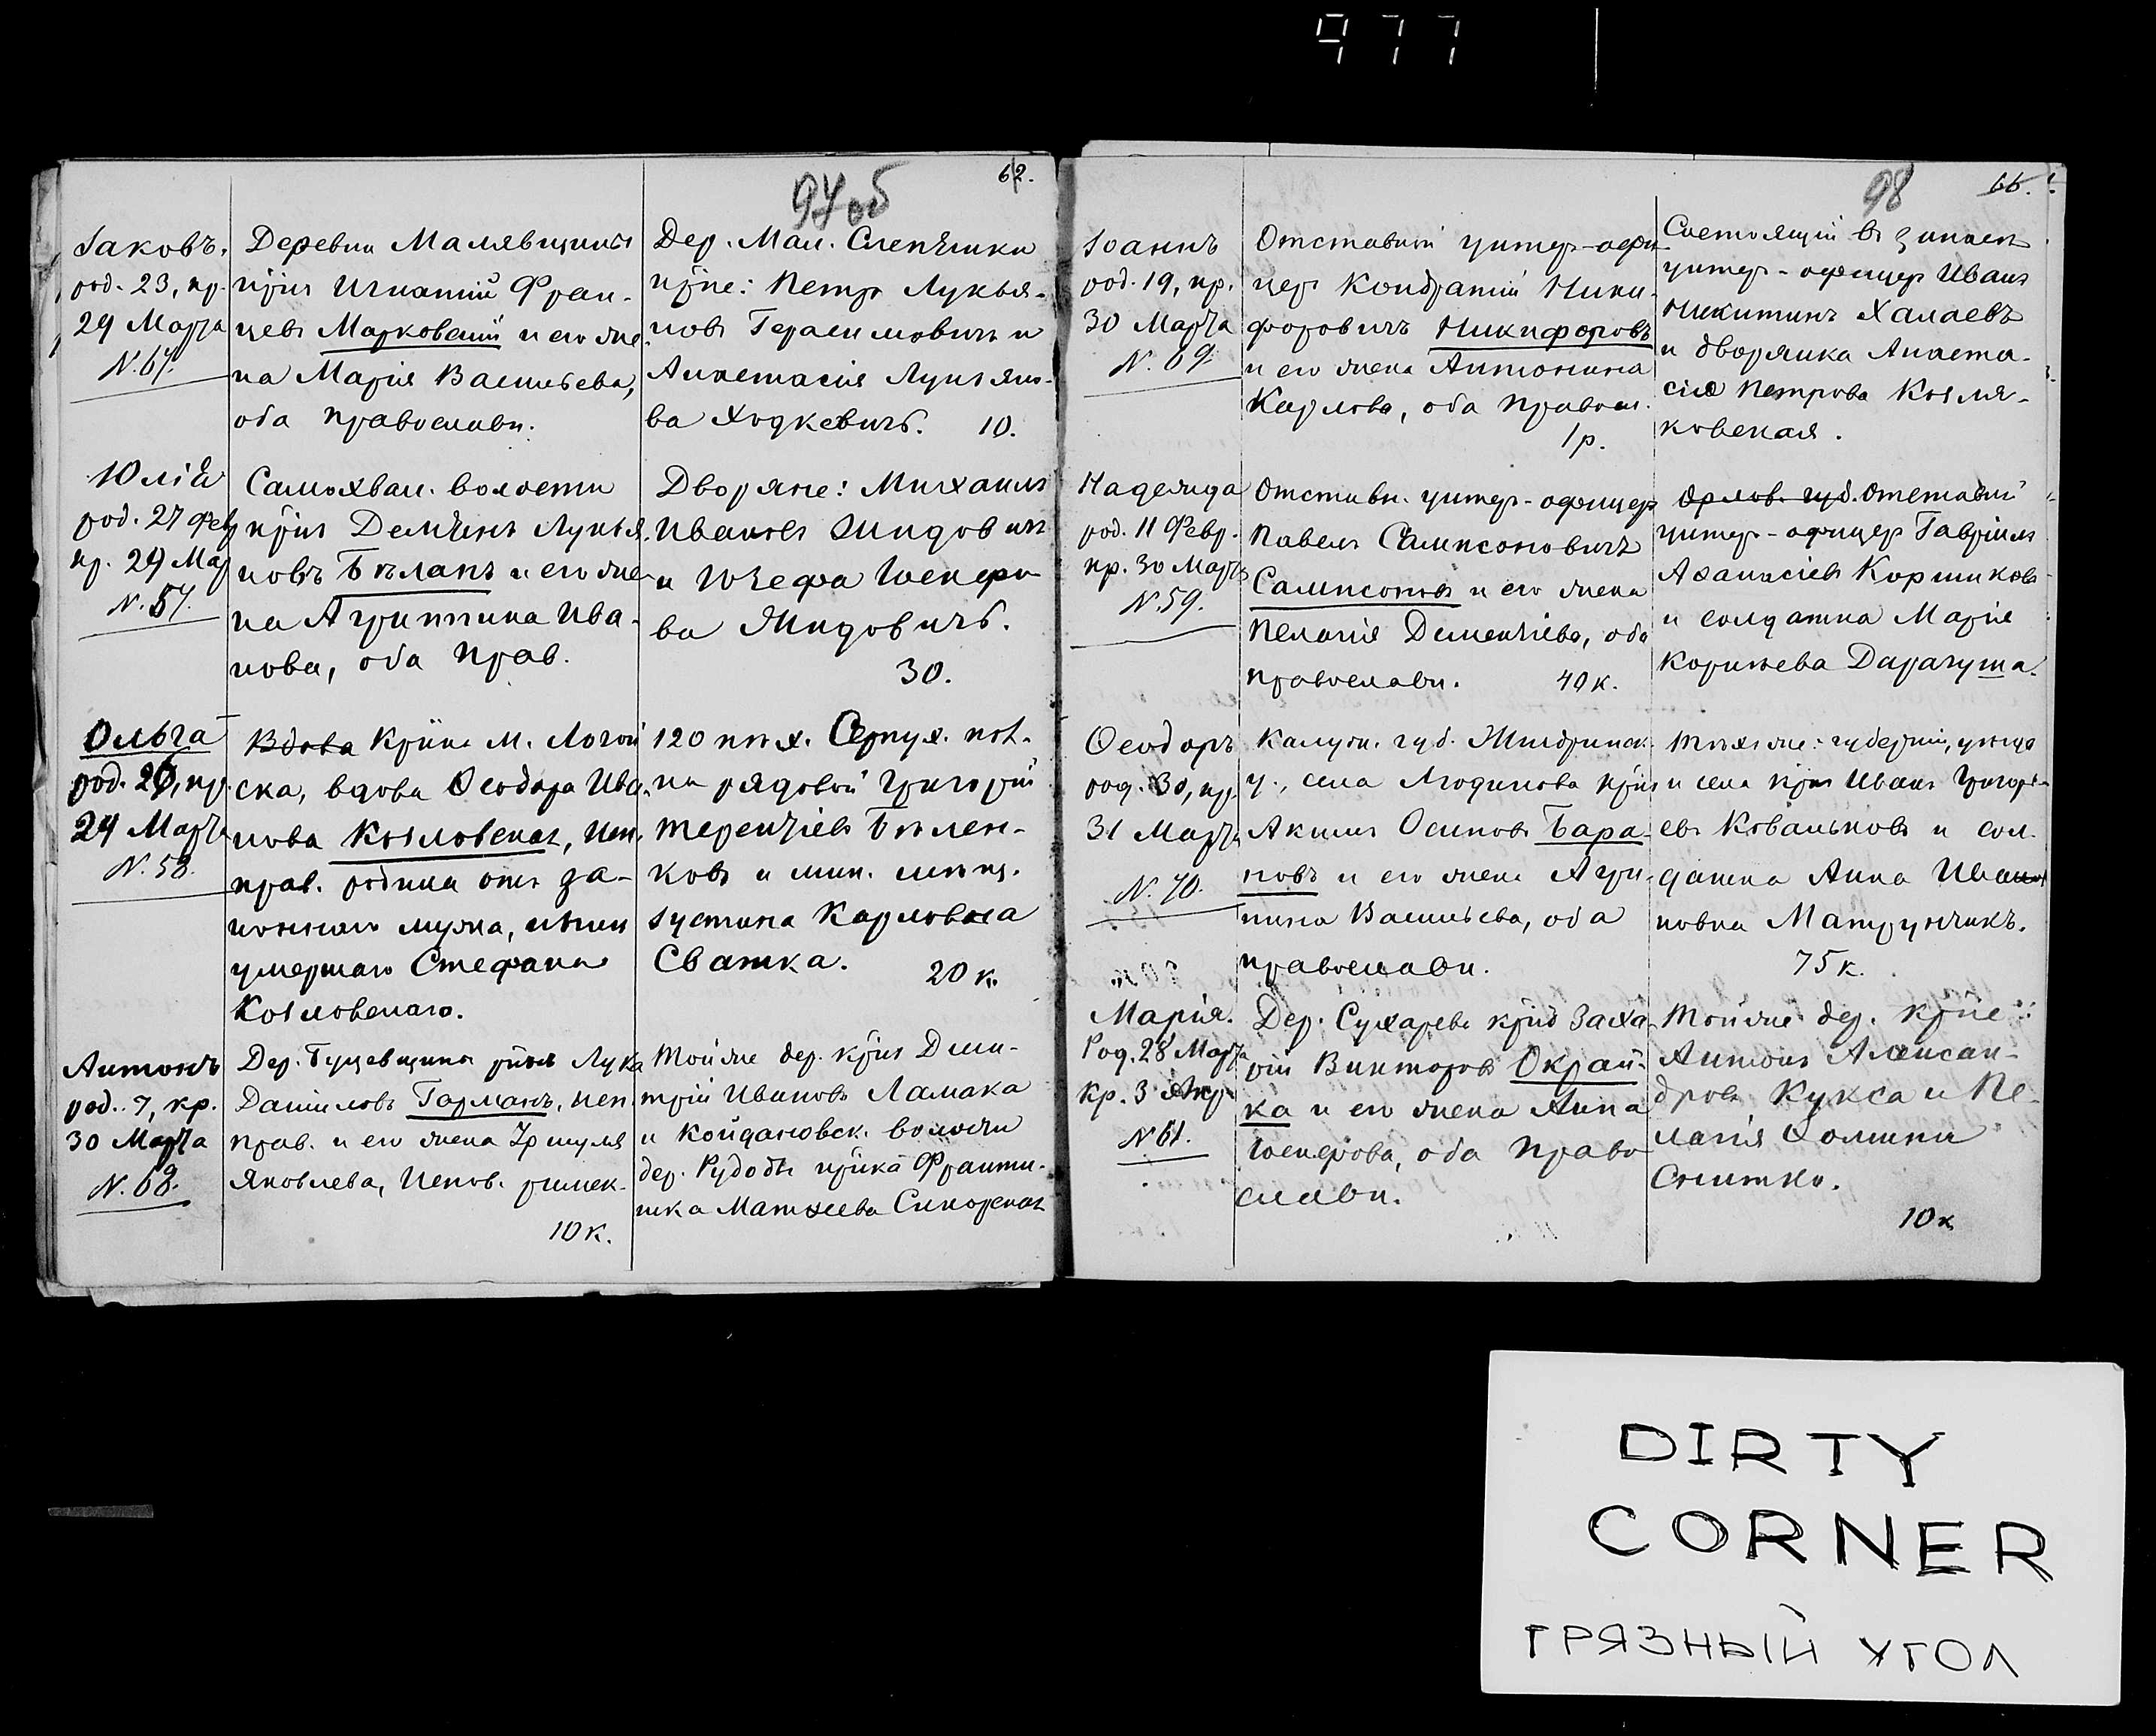 977
62.
97 об
Іаковъ.
род. 23, кр.
29 Марта
N. 67.
Деревни Малявщины
крн Игнатій Фран-
цевъ Марковскій и его же-
на Марія Васильева,
оба православн.
Дер. Мал. Слепянки
крне: Петръ Лукья-
новъ Герасимовичъ и
Анастасія Лукьяно-
ва Ходкевичъ. 10.
Юлія
род. 27 Фев
кр. 29 Мар
N. 57.
Самохвал. волости
крн Демьянъ Лукья-
новъ Бѣланъ и его же-
на Агриппина Ива-
нова, оба прав.
Дворяне: Михаилъ
Ивановъ Жидовичъ
и Юзефа Іосифо-
ва Жидовичъ.
30.
Ольга
род. 20, кр.
29 Марта
N. 58.
Вдова Крнка М. Логой
ска, вдова Ѳеодора Ива-
нова Козловская, исп.
прав. родила отъ за-
коннаго мужа,
умершаго Стефана
Козловскаго.
120 пѣх. Серпух. пол-
ка рядовой Григорій
Терентіевъ Бѣлен-
ковъ и мин. мѣщ.
Іустина Карловна
Сватка. 20 к.
Антонъ
род. 7, кр.
30 Марта
N. 68.
Дер. Буцевщины Лука
Даниловъ Гарманъ, исп.
прав. и его жена Уршуля
Яковлева, испов. римск.
10 к.
Той же дер. крн Дми-
трій Ивановъ Ламака
и Койдановск. волости
дер. Рудобѣ крнка Франти-
шка Матѳеева Сикорская
98
66.
Іоаннъ
род. 19, кр.
30 Марта
N. 69
Отставной унтер-офи-
церъ Кондратій Ники-
форовичъ Никифоровъ
и его жена Антонина
Карлова, оба правосл.
1 р.
Состоящій въ запасѣ
унтер-офицеръ Иванъ
Никитинъ Халаевъ
и дворянка Анаста-
сія Петрова Козля-
ковская.
Надежда
род. 11 Февр.
кр. 30 Марта
N. 59.
Отставн. унтер-офицеръ
Павелъ Сампсоновичъ
Сампсоновъ и его жена
Пелагія Дементіева, оба
православн. 40 к.
Орлов. губ. Отставной
унтер-офицеръ Гавріилъ
Аѳанасіевъ Коршиковъ
и солдатка Марія
Корнѣева Дарагуша.
Ѳеодоръ
род. 30, кр.
31 Марта
N. 70.
Калуж. губ. Жиздринск.
у., села Людинова крн
Акимъ Осиповъ Бара-
новъ и его жена Агри-
пина Васильева, оба
православн.
Тѣхъ же: губерніи, уезда
и села крн Иванъ Григорі-
евъ Ковальковъ и сол-
датка Анна Иван
новна Матрунчикъ.
75 к.
Марія.
Род. 28 Марта
кр. 3 Апр
N 61.
Дер. Сухарева крн Заха-
рій Викторовъ Окрай-
ка и его жена Анна
Іосифова, оба право
славн.
Той же дер. крне:
Антонъ Алексан-
дровъ Кукса и Пе-
лагія Ѳомина
Снитко.
10 к
DIRTY
CORNER
ГРЯЗНЫЙ УГОЛ